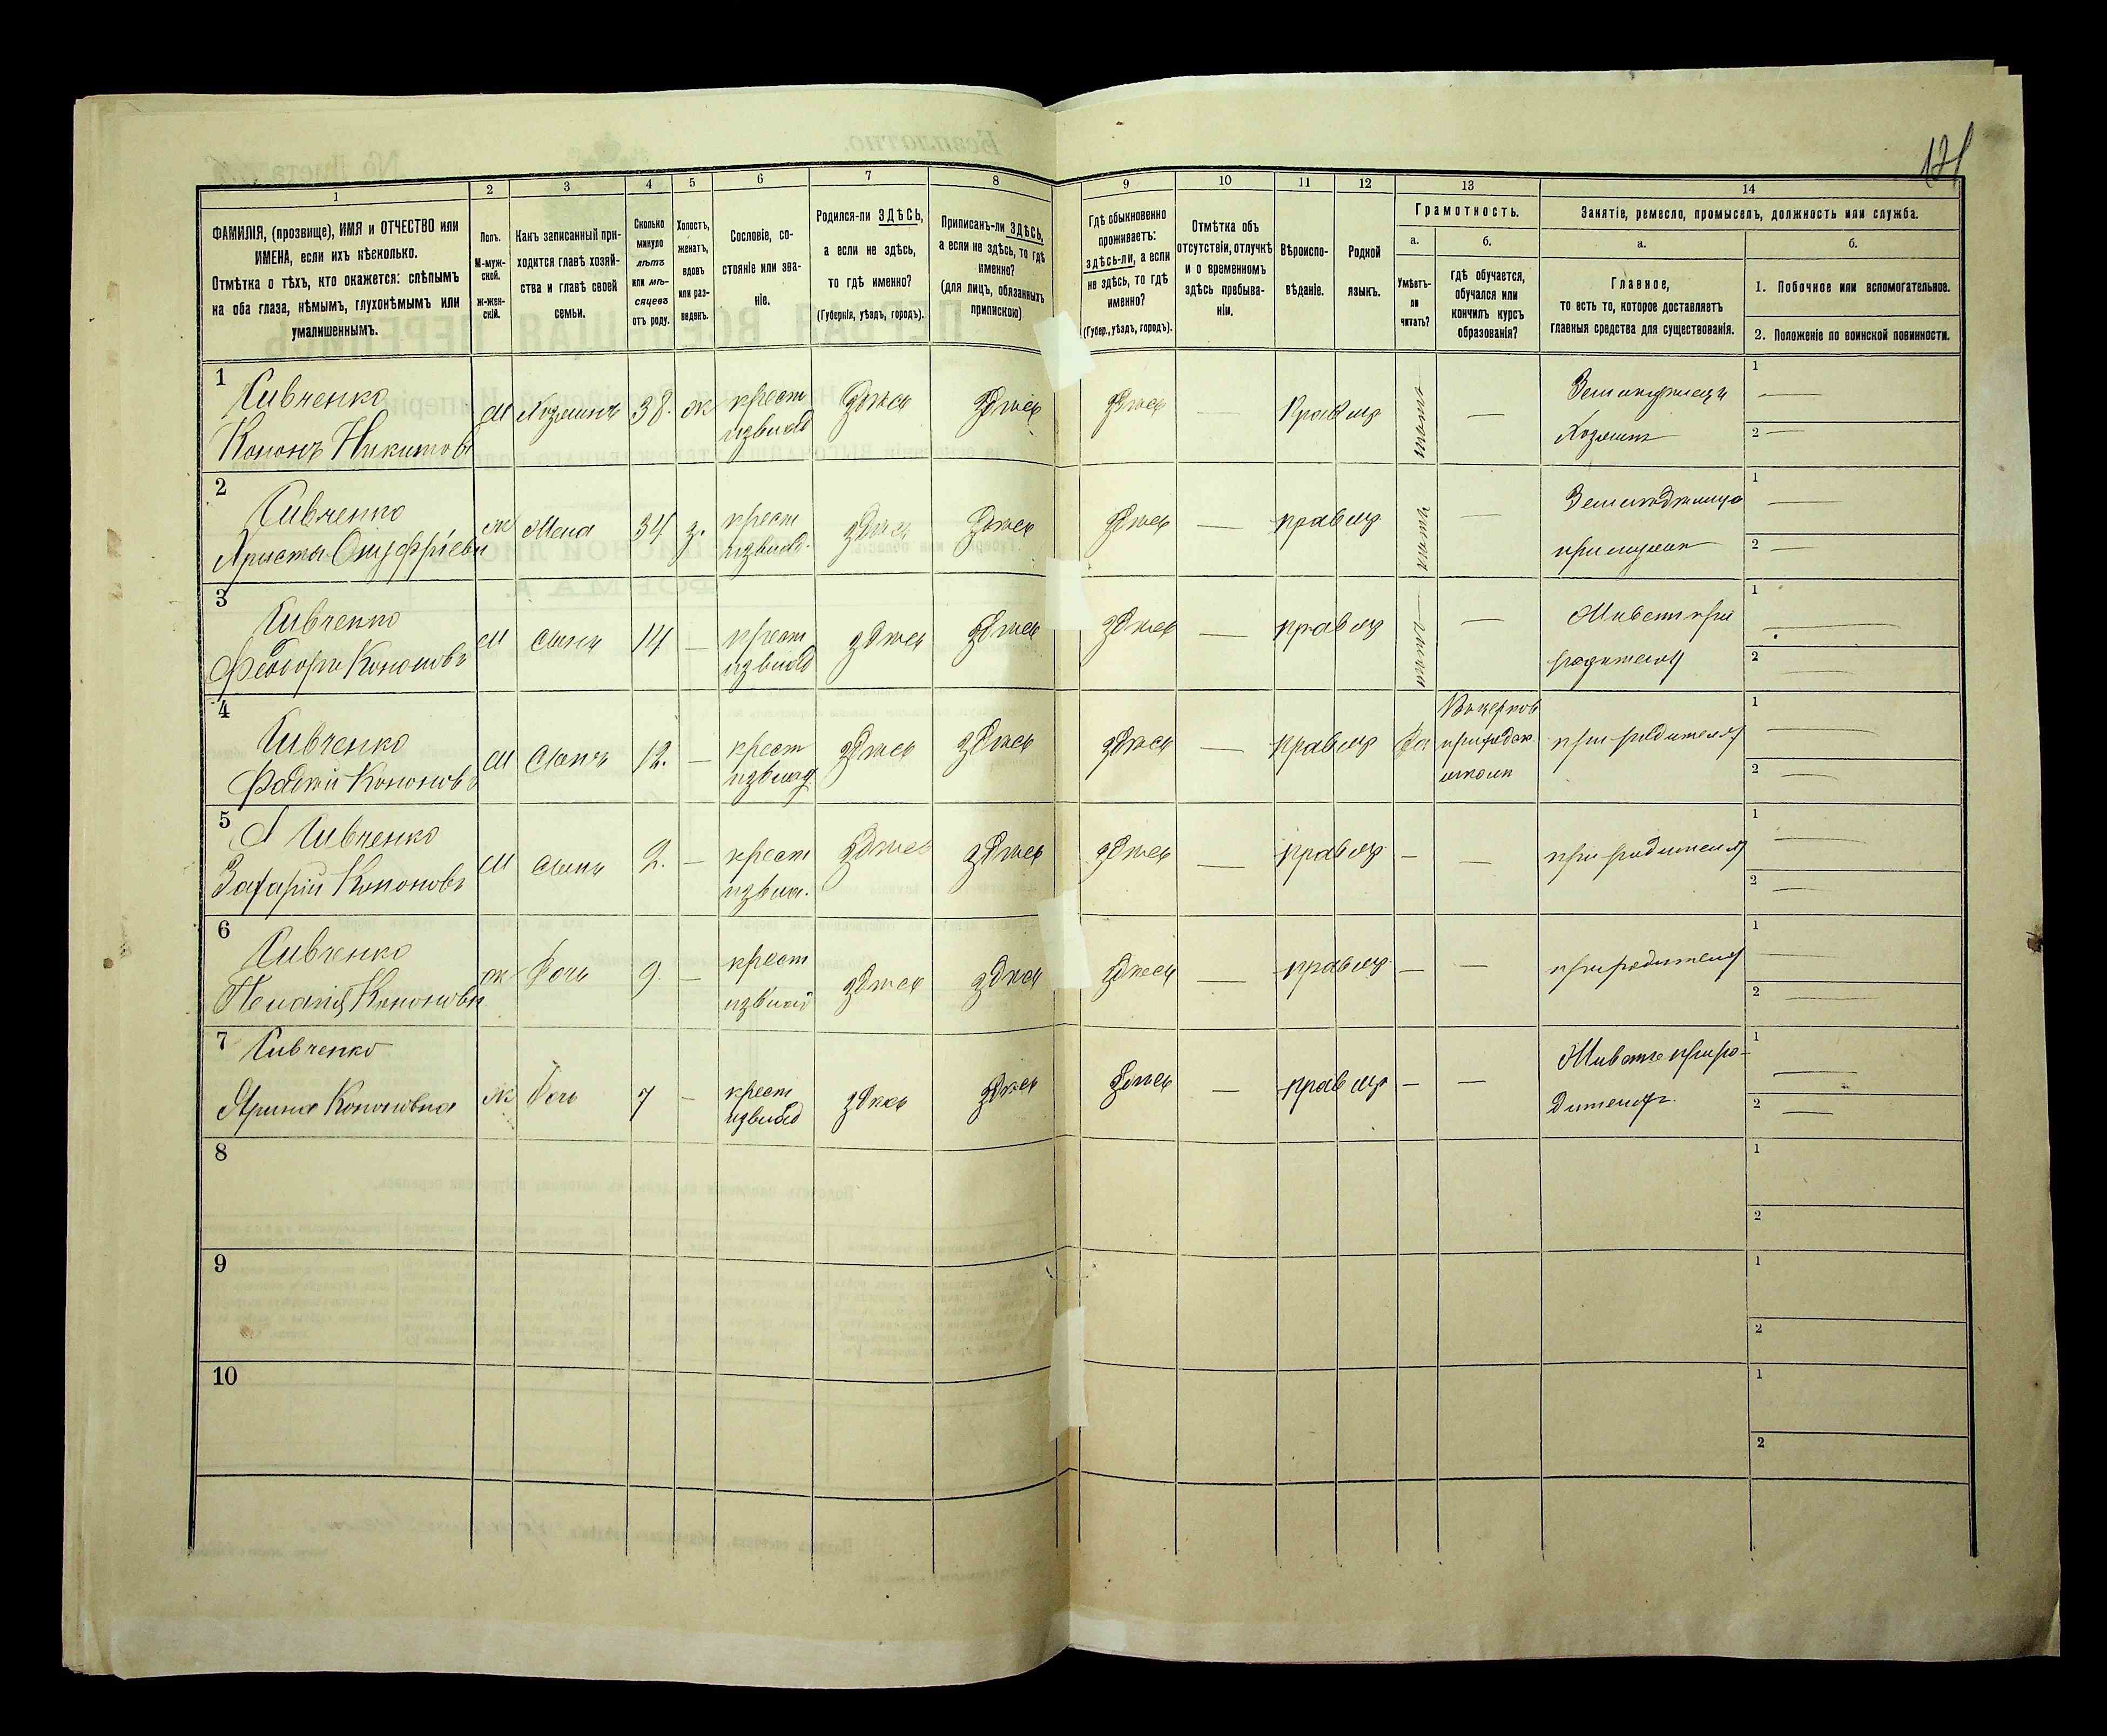 121
1 2 3 4 5 6 7 8 9 10 11 12 13 14
ФАМИЛІЯ, (прозвище), ИМЯ и ОТЧЕСТВО или
ИМЕНА, если ихъ нѣсколько.
Отмѣтка о тѣхъ, кто окажется: слѣпымъ
на оба глаза, нѣмымъ, глухонѣмымъ или
умалишеннымъ.
Полъ.
М-муж-
ской.
ж-жен-
скій.
Какъ записанный при-
ходится главѣ хозяй-
ства и главѣ своей
семьи.
Сколько
минуло
лѣтъ
или мѣ-
сяцевъ
отъ роду.
Холостъ,
женатъ,
вдовъ
или раз-
веденъ.
Сословіе, со-
стояніе или зва-
ніе.
Родился-ли ЗДѢСЬ,
а если не здѣсь,
то гдѣ именно?
(Губернія, уѣздъ, городъ).
Приписанъ-ли ЗДѢСЬ,
а если не здѣсь, то гдѣ
именно?
(для лицъ, обязанныхъ
припискою)
Гдѣ обыкновенно
проживаетъ:
здѣсь-ли, а если
не здѣсь, то гдѣ
именно?
(Губер., уѣздъ, городъ).
Отмѣтка объ
отсутствіи, отлучкѣ
и о временномъ
здѣсь пребыва-
ніи.
Вѣроиспо-
вѣданіе.
Родной
языкъ.
Грамотность.
а.
Умѣетъ-
ли
читать?
б.
гдѣ обучается,
обучался или
кончилъ курсъ
образованія?
Занятіе, ремесло, промыселъ, должность или служба.
а.
Главное,
то есть то, которое доставляетъ
главныя средства для существованія.
б.
1. Побочное или вспомогательное.
2. Положеніе по воинской повинности.
1
Сивченко
Кононъ Никитовъ
м Хозяинъ 38. ж крест
из влад
здѣсь здѣсь здѣсь — Правмр — Земледѣлецъ
Хозяин
1 —
2 —
2
Сивченко
Христа Онуфріевн
ж Жена 34 з. крест
из влад.
здѣсь здѣсь здѣсь — правмр — Земледѣлица
при мужи
1 —
2 —
3
Сивченко
Федоръ Кононовъ
м сынъ 14 — крест
из влад
здѣсь здѣсь здѣсь — правмр — Живет при
родителя
1 —
2 —
4
Сивченко
Кононовъ
м сынъ 12. — крест
из влад
здѣсь здѣсь здѣсь — правмр да
приходск
школи
при родителя
1 —
2 —
5
Сивченко
Захарій Кононовъ
м сынъ 2. — крест
из вла.
здѣсь здѣсь здѣсь — правмр — — при родителя
1 —
2 —
6
Сивченко
Пелагія Кононовн
ж дочь 9. — крест
из влад
здѣсь здѣсь здѣсь — правмр — — при родителя
1 —
2 —
7 Сивченко
Ярина Кононовна
ж дочь 7 — крест
из влад
здѣсь здѣсь здѣсь — правмр — — при ро-
дителях
1 —
2 —
8 1
2
9 1
2
10 1
2